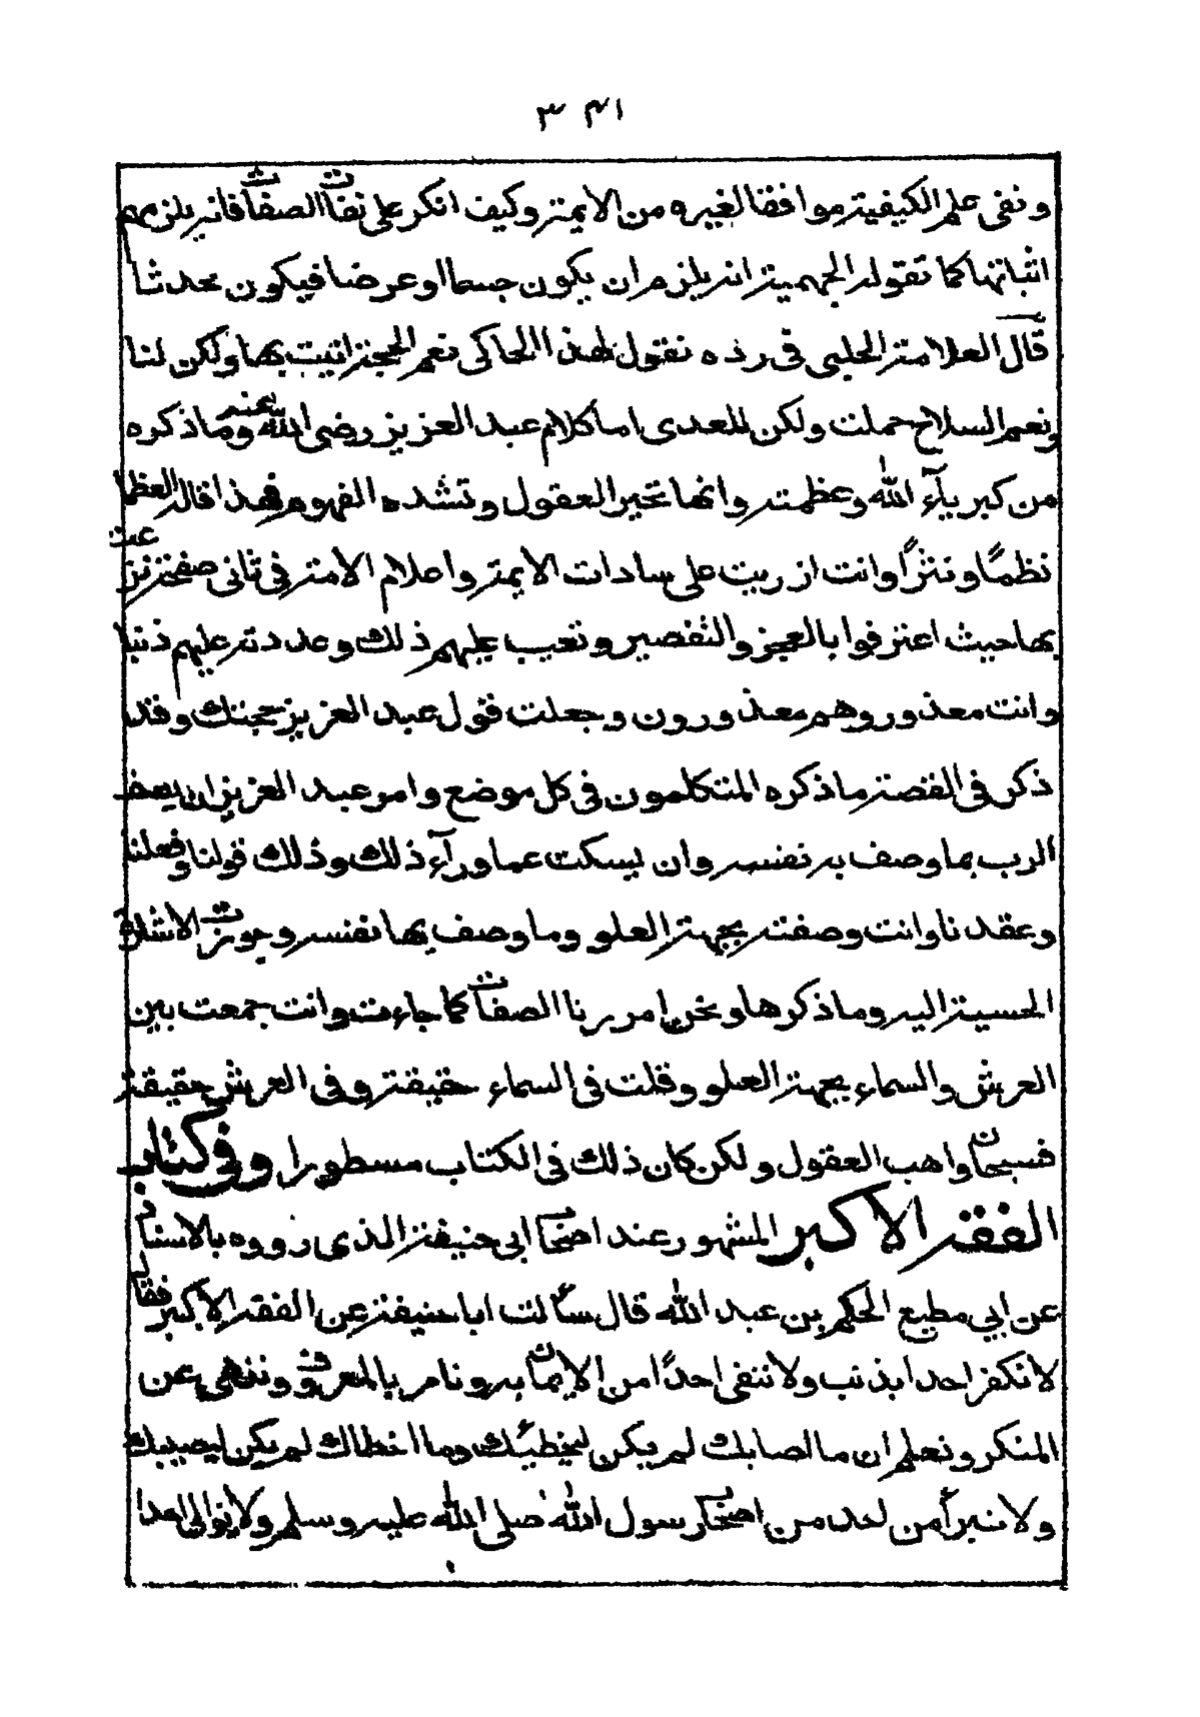 ونفى علم الكيفية موافقا لغيره من الايمة وكيف انكر على نفات الصفات فانه يلزمهم
اثباتها كما تقوله الجهمية انه يلزم ان يكون جسما او عرضا فيكون محدثا
قال العلامة الحلبى فى رده نقول لهذا الحاكى نعم الحجة اتيت بها ولكن لنا
ونعم السلاح حملت ولكن للعدى اما كلام عبد العزيز رضى الله عنه وما ذكره
من كبرياء الله وعظمته وانها تحير العقول وتشده الفهوم فهذا قاله العظما
نظمًا ونثرًا وانت ازريت على سادات الايمة واعلام الامة فى ثانى صفحة نزعت
بها حيث اعترفوا بالعجز والتقصير وتعيب عليهم ذلك وعددته عليهم ذنبا
وانت معذور وهم معذورون وجعلت قول عبد العزيز حجتك وقد
ذكر فى القصة ما ذكره المتكلمون فى كل موضع وامر عبد العزيز ان يصف
الرب بما وصف به نفسه وان يسكت عما ورآء ذلك وذلك قولنا وفعلنا
وعقدنا وانت وصفته بجهة العلو وما وصف بها نفسه وجوزت الاشارة
الحسية اليه وما ذكرها ونحن امررنا الصفات كما جاءت وانت جمعت بين
العرش والسماء بجهة العلو وقلت فى السماء حقيقة وفى العرش حقيقة
فسبحان واهب العقول ولكن كان ذلك فى الكتاب مسطورا وفى كتاب
الفقه الاكبر المشهور عند اصحاب ابى حنيفة الذى رووه بالاسناد
عن ابي مطيع الحكم بن عبد الله قال سألت ابا حنيفة عن الفقه الاكبر فقال
لا نكفر احدا بذنب ولا ننفى احدًا من الايمان به ونامر بالمعروف وننهى عن
المنكر ونعلم ان ما اصابك لم يكن ليخطئك وما اخطاك لم يكن ليصيبك
ولا نتبرأ من احد من اصحاب رسول الله صلى الله عليه وسلم ولا نوالى احدا